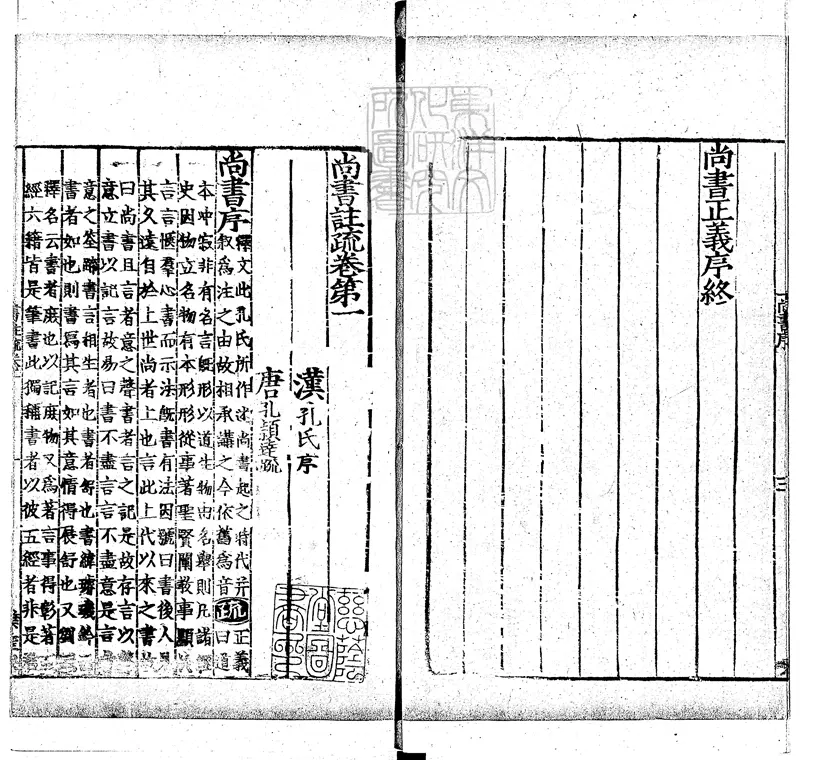 尚書序
三
尚書正義序終
東洋文
化研究
所圖書
尚書註疏卷第一
漢孔氏序
唐孔穎達疏
尚書序
釋文此孔氏所作述尚書起之時代并
叙爲注之由故相承講之今依舊爲音
疏
正義
曰道
本沖寂非有名言旣形以道生物由名舉則凡諸
史因物立名物有本形形從事著聖賢闡教事顯
言言愜羣心書而示法旣書有法因號曰書後人見
其久遠自於上世尚者上也言此上代以來之書故
曰尚書且言者意之聲書者言之記是故存言以
意立書以記言故易曰書不盡言言不盡意是言
意之筌蹄書言相生者也書者舒也書緯璿璣鈐
書者如也則書寫其言如其意情得展舒也又劉
釋名云書者庶也以記庶物又爲著言事得彰著
經六籍皆是筆書此獨稱書者以彼五經者非是